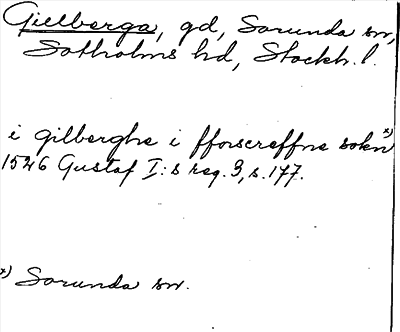 Gielberga, gd, Sorunda sn,
Sotholms hd, Stockh. l.
i gilberghe i fforscreffne sokn x)
1526 Gustaf I:s reg. 3, s. 177.
x) Sorunda sn.